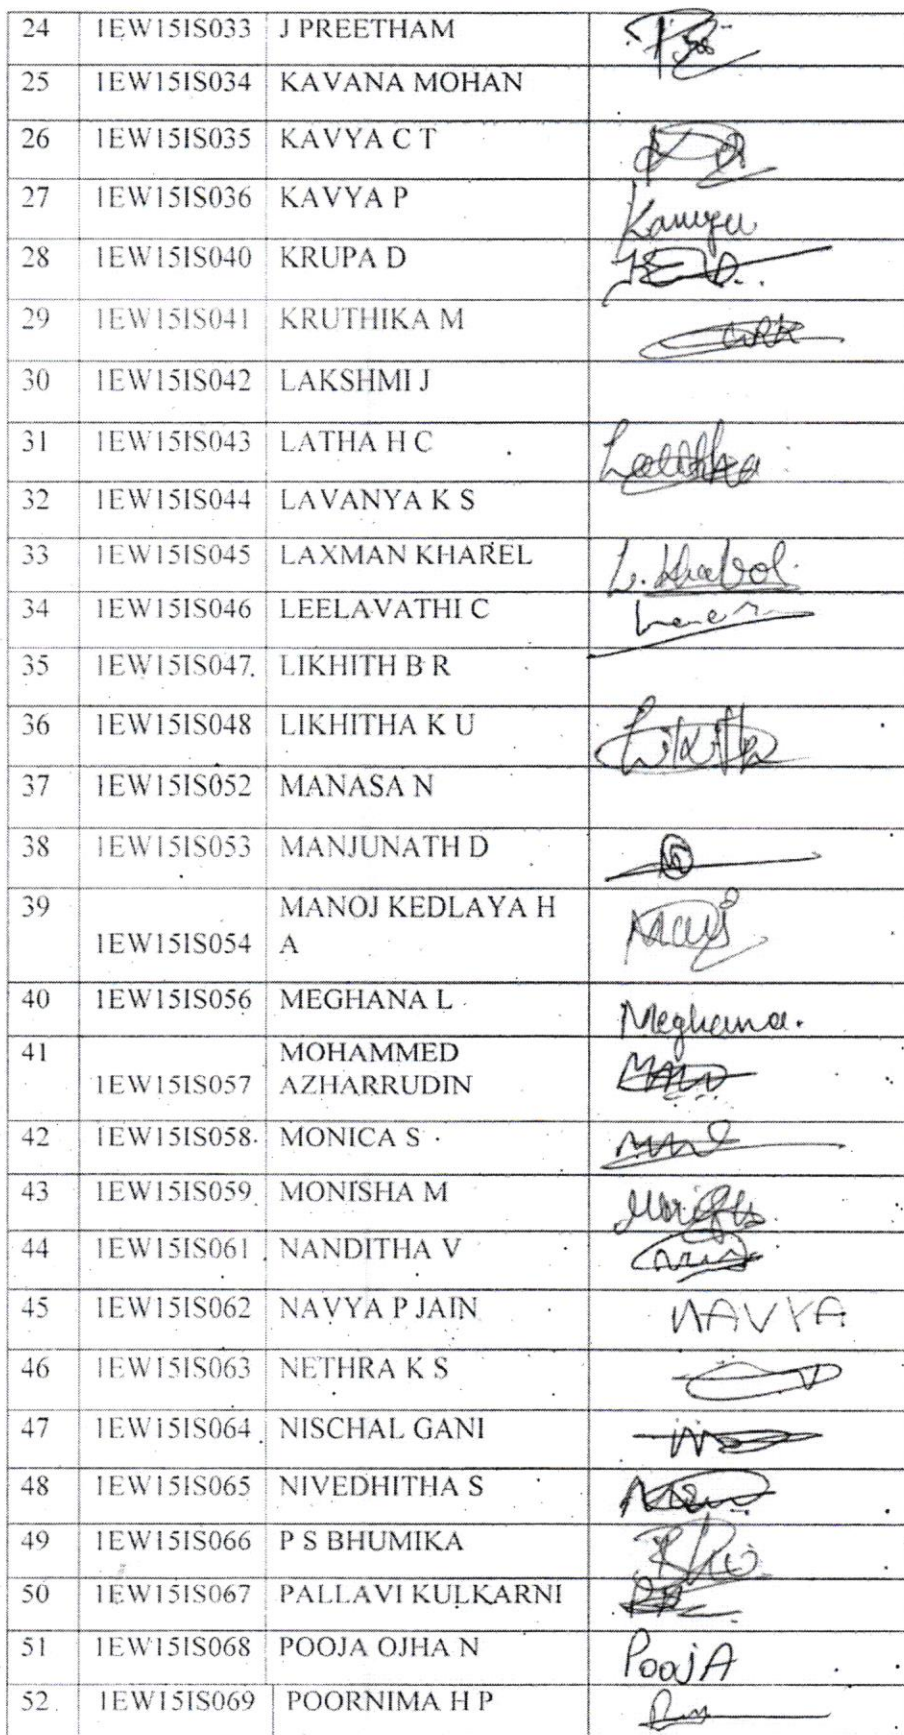 24 1EW15IS033 J PREETHAM
25 1EW15IS034 KAVANA MOHAN
26 1EW15IS035 KAVYA C T
27 1EW15IS036 KAVYA P
28 1EW15IS040 KRUPA D
29 1EW15IS041 KRUTHIKA M
30 1EW15IS042 LAKSHMI J
31 1EW15IS043 LATHA H C
32 1EW15IS044 LAVANYA K S
33 1EW15IS045 LAXMAN KHAREL
34 1EW15IS046 LEELAVATHI C
35 1EW15IS047 LIKHITH B R
36 1EW15IS048 LIKHITHA K U
37 1EW15IS052 MANASA N
38 1EW15IS053 MANJUNATH D
39 MANOJ KEDLAYA H
1EW15IS054 A
40 1EW15IS056 MEGHANA L Meghana.
41 MOHAMMED
1EW15IS057 AZHARRUDIN
42 1EW15IS058 MONICA S
43 1EW15IS059 MONISHA M
44 1EW15IS061 NANDITHA V
45 1EW15IS062 NAVYA P JAIN NAVYA
46 1EW15IS063 NETHRA K S
47 1EW15IS064 NISCHAL GANI
48 1EW15IS065 NIVEDHITHA S
49 1EW15IS066 P S BHUMIKA
50 1EW15IS067 PALLAVI KULKARNI
51 1EW15IS068 POOJA OJHA N PoojA
52 1EW15IS069 POORNIMA H P